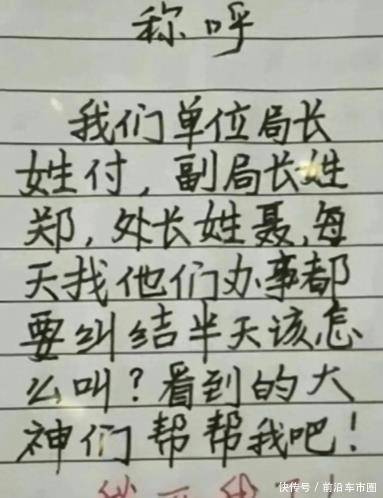 称呼
我们单位局长
姓付，副局长姓
郑，处长姓聂，每
天找他们办事都
要纠结半天该怎
么叫？看到的大
神们帮帮我吧！
快传号 / 前沿车市圈